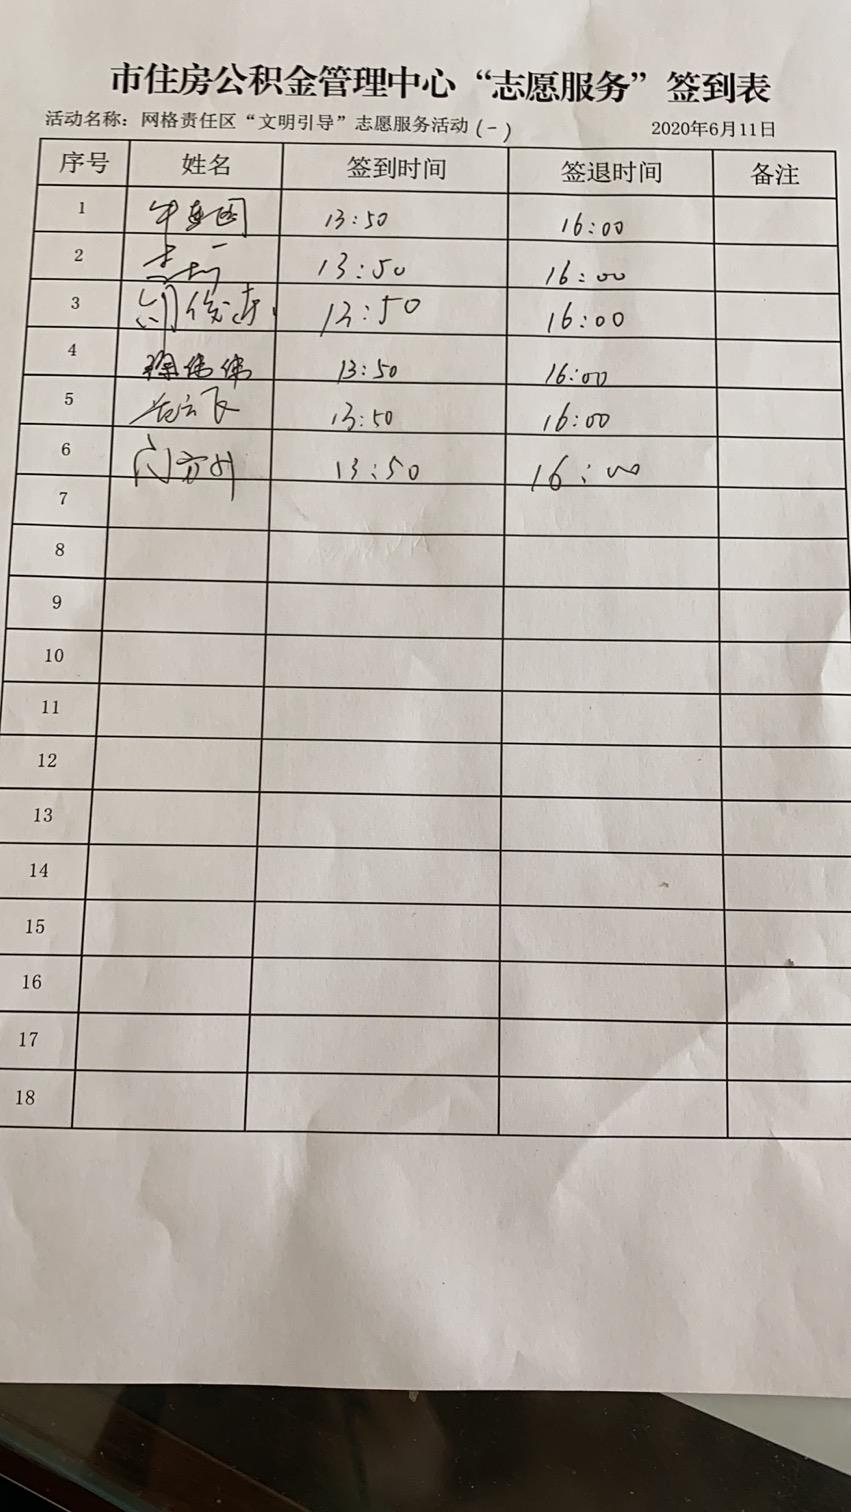 市住房公积金管理中心“志愿服务”签到表
活动名称：网格责任区“文明引导”志愿服务活动（一） 2020年6月11日
序号 姓名 签到时间 签退时间 备注
1 13:50 16:00
2 13:50 16:00
3 13:50 16:00
4 徐伟伟 13:50 16:00
5 13:50 16:00
6 13:50 16:00
7
8
9
10
11
12
13
14
15
16
17
18